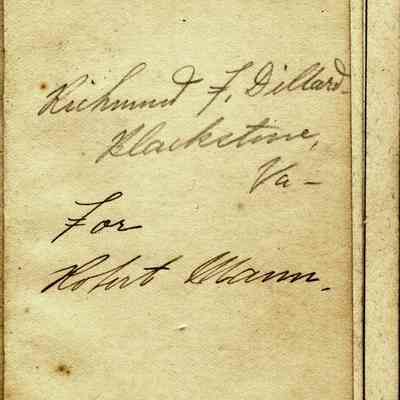 Richmond F. Dillard
Blackstone,
Va –
For
Robert Mann.